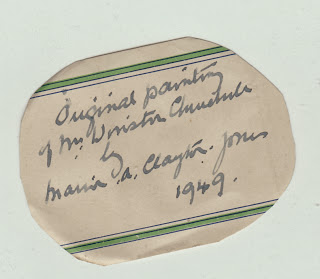 Original painting
of Mr. Winston Churchill
by
Marie A. Clayton-Jones
1949.